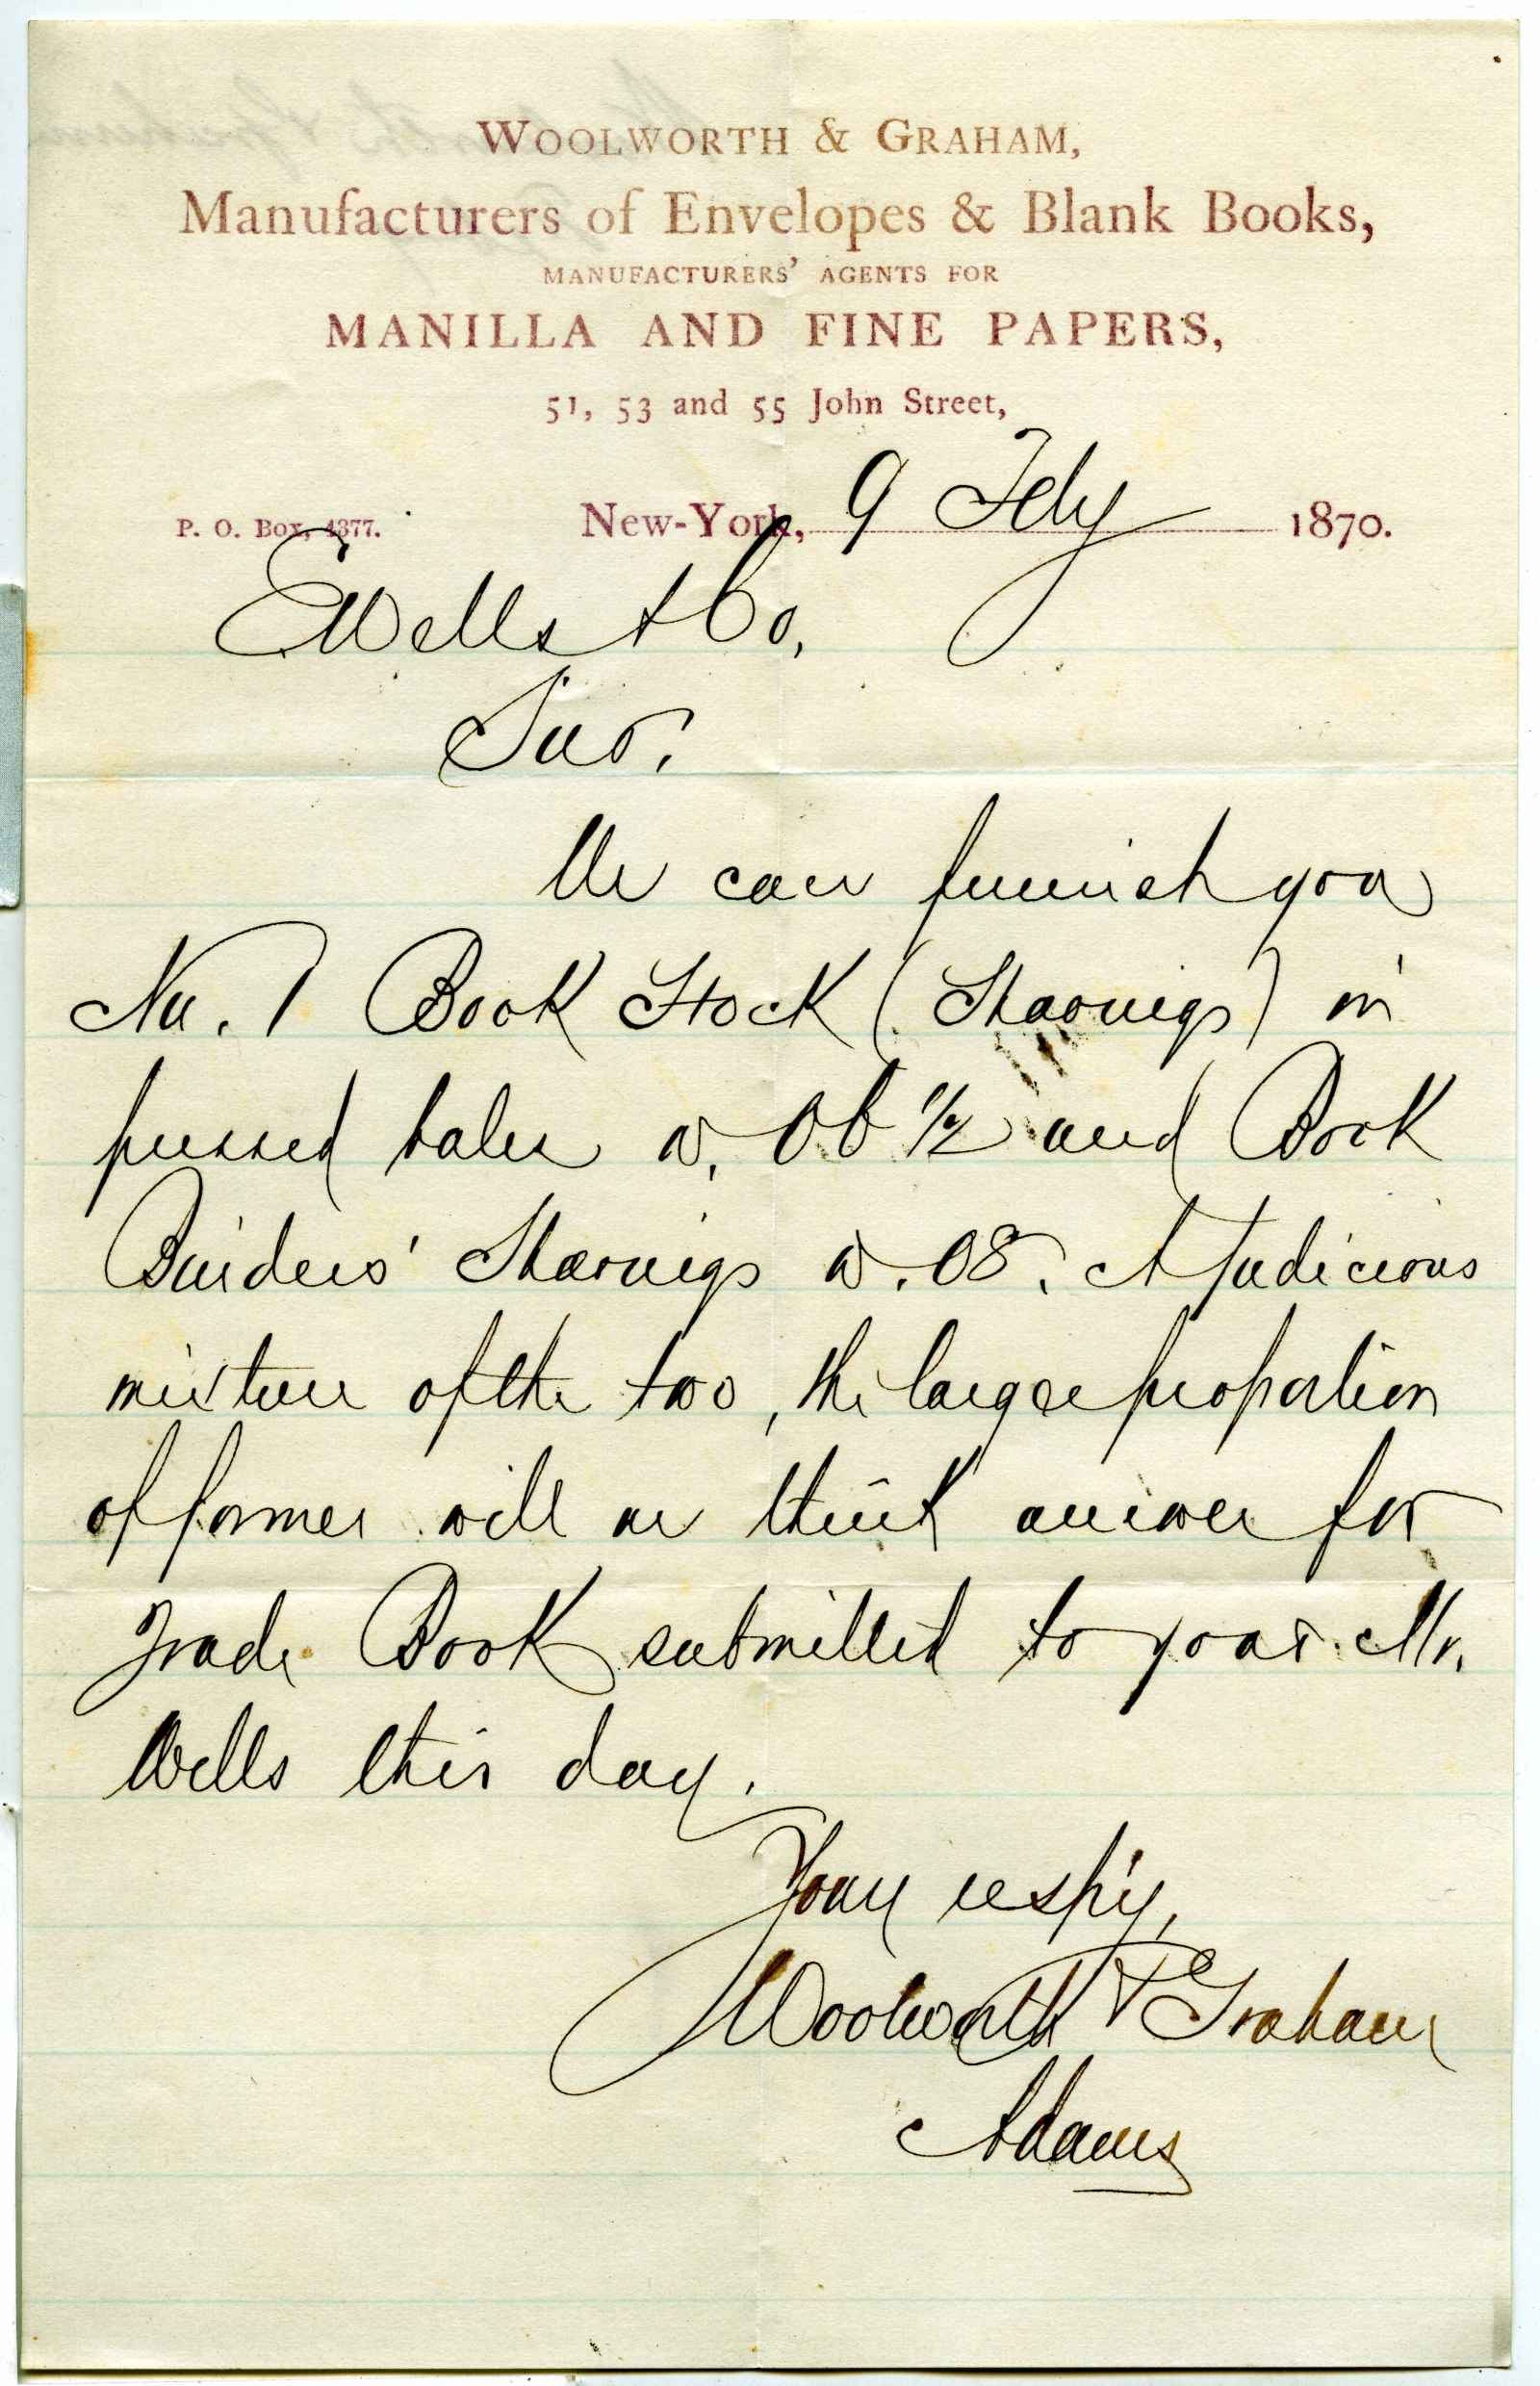 WOOLWORTH & GRAHAM,
Manufacturers of Envelopes & Blank Books,
MANUFACTURERS' AGENTS FOR
MANILLA AND FINE PAPERS,
51, 53 and 55 John Street,
P. O. Box, 4377. New-York, 9 Feby 1870.
E Wells & Co,
Sirs.
We can furnish you
No. 1 Book Stock (Shavings) in
pressed bales @ 06 1/2 and Book
Binders' Shavings @ .08. A judicious
mixture of the two, the larger proportion
of former will we think answer for
grade Book submitted to your Mr.
Wells this day.
Yours respy,
Woolworth & Graham
Adams